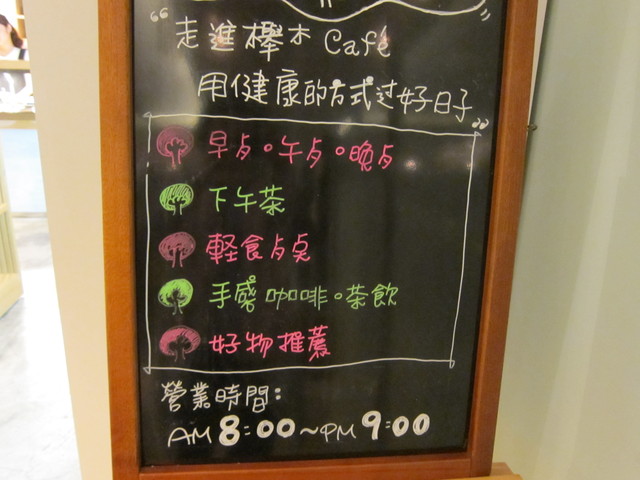 “走進櫸木 Café
用健康的方式过好日子”
早点。午点。晚点
下午茶
軽食点桌
手感咖啡。茶飲
好物推薦
營業時間：
AM 8:00～PM 9:00